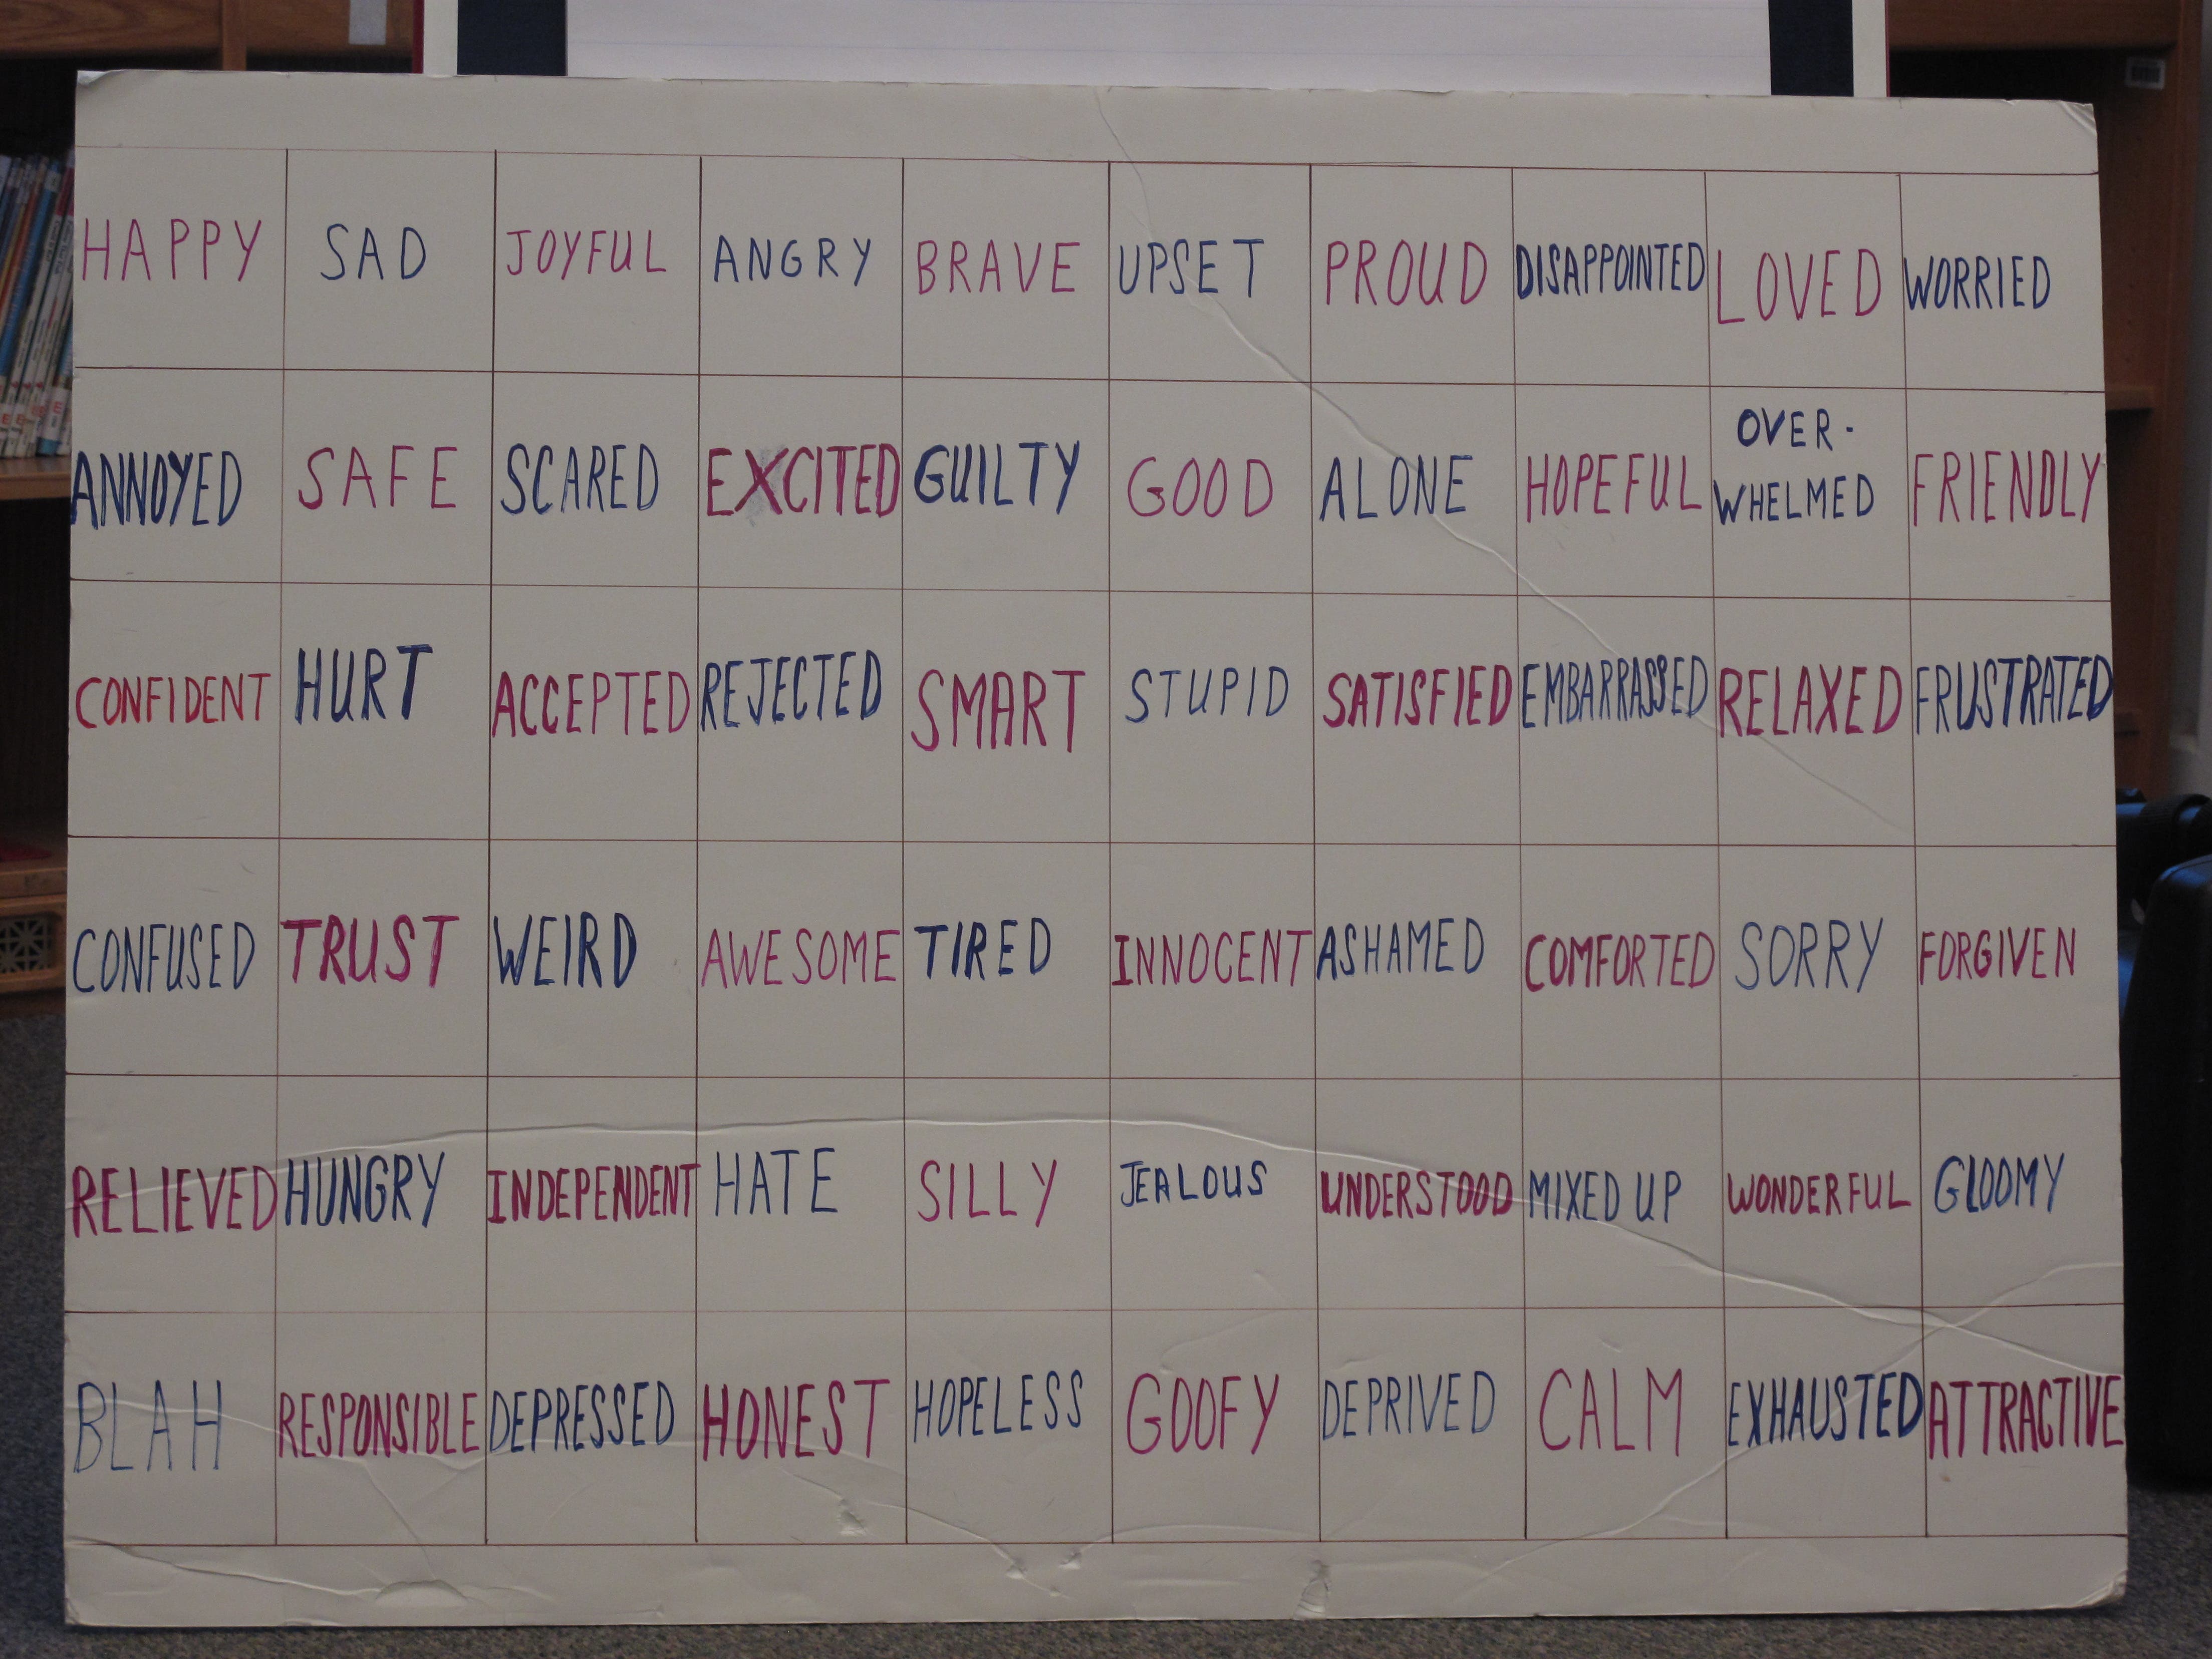 HAPPY SAD JOYFUL ANGRY BRAVE UPSET PROUD DISAPPOINTED LOVED WORRIED
ANNOYED SAFE SCARED EXCITED GUILTY GOOD ALONE HOPEFUL OVER-
WHELMED FRIENDLY
CONFIDENT HURT ACCEPTED REJECTED SMART STUPID SATISFIED EMBARRASSED RELAXED FRUSTRATED
CONFUSED TRUST WEIRD AWESOME TIRED INNOCENT ASHAMED COMFORTED SORRY FORGIVEN
RELIEVED HUNGRY INDEPENDENT HATE SILLY JEALOUS UNDERSTOOD MIXED UP WONDERFUL GLOOMY
BLAH RESPONSIBLE DEPRESSED HONEST HOPELESS GOOFY DEPRIVED CALM EXHAUSTED ATTRACTIVE